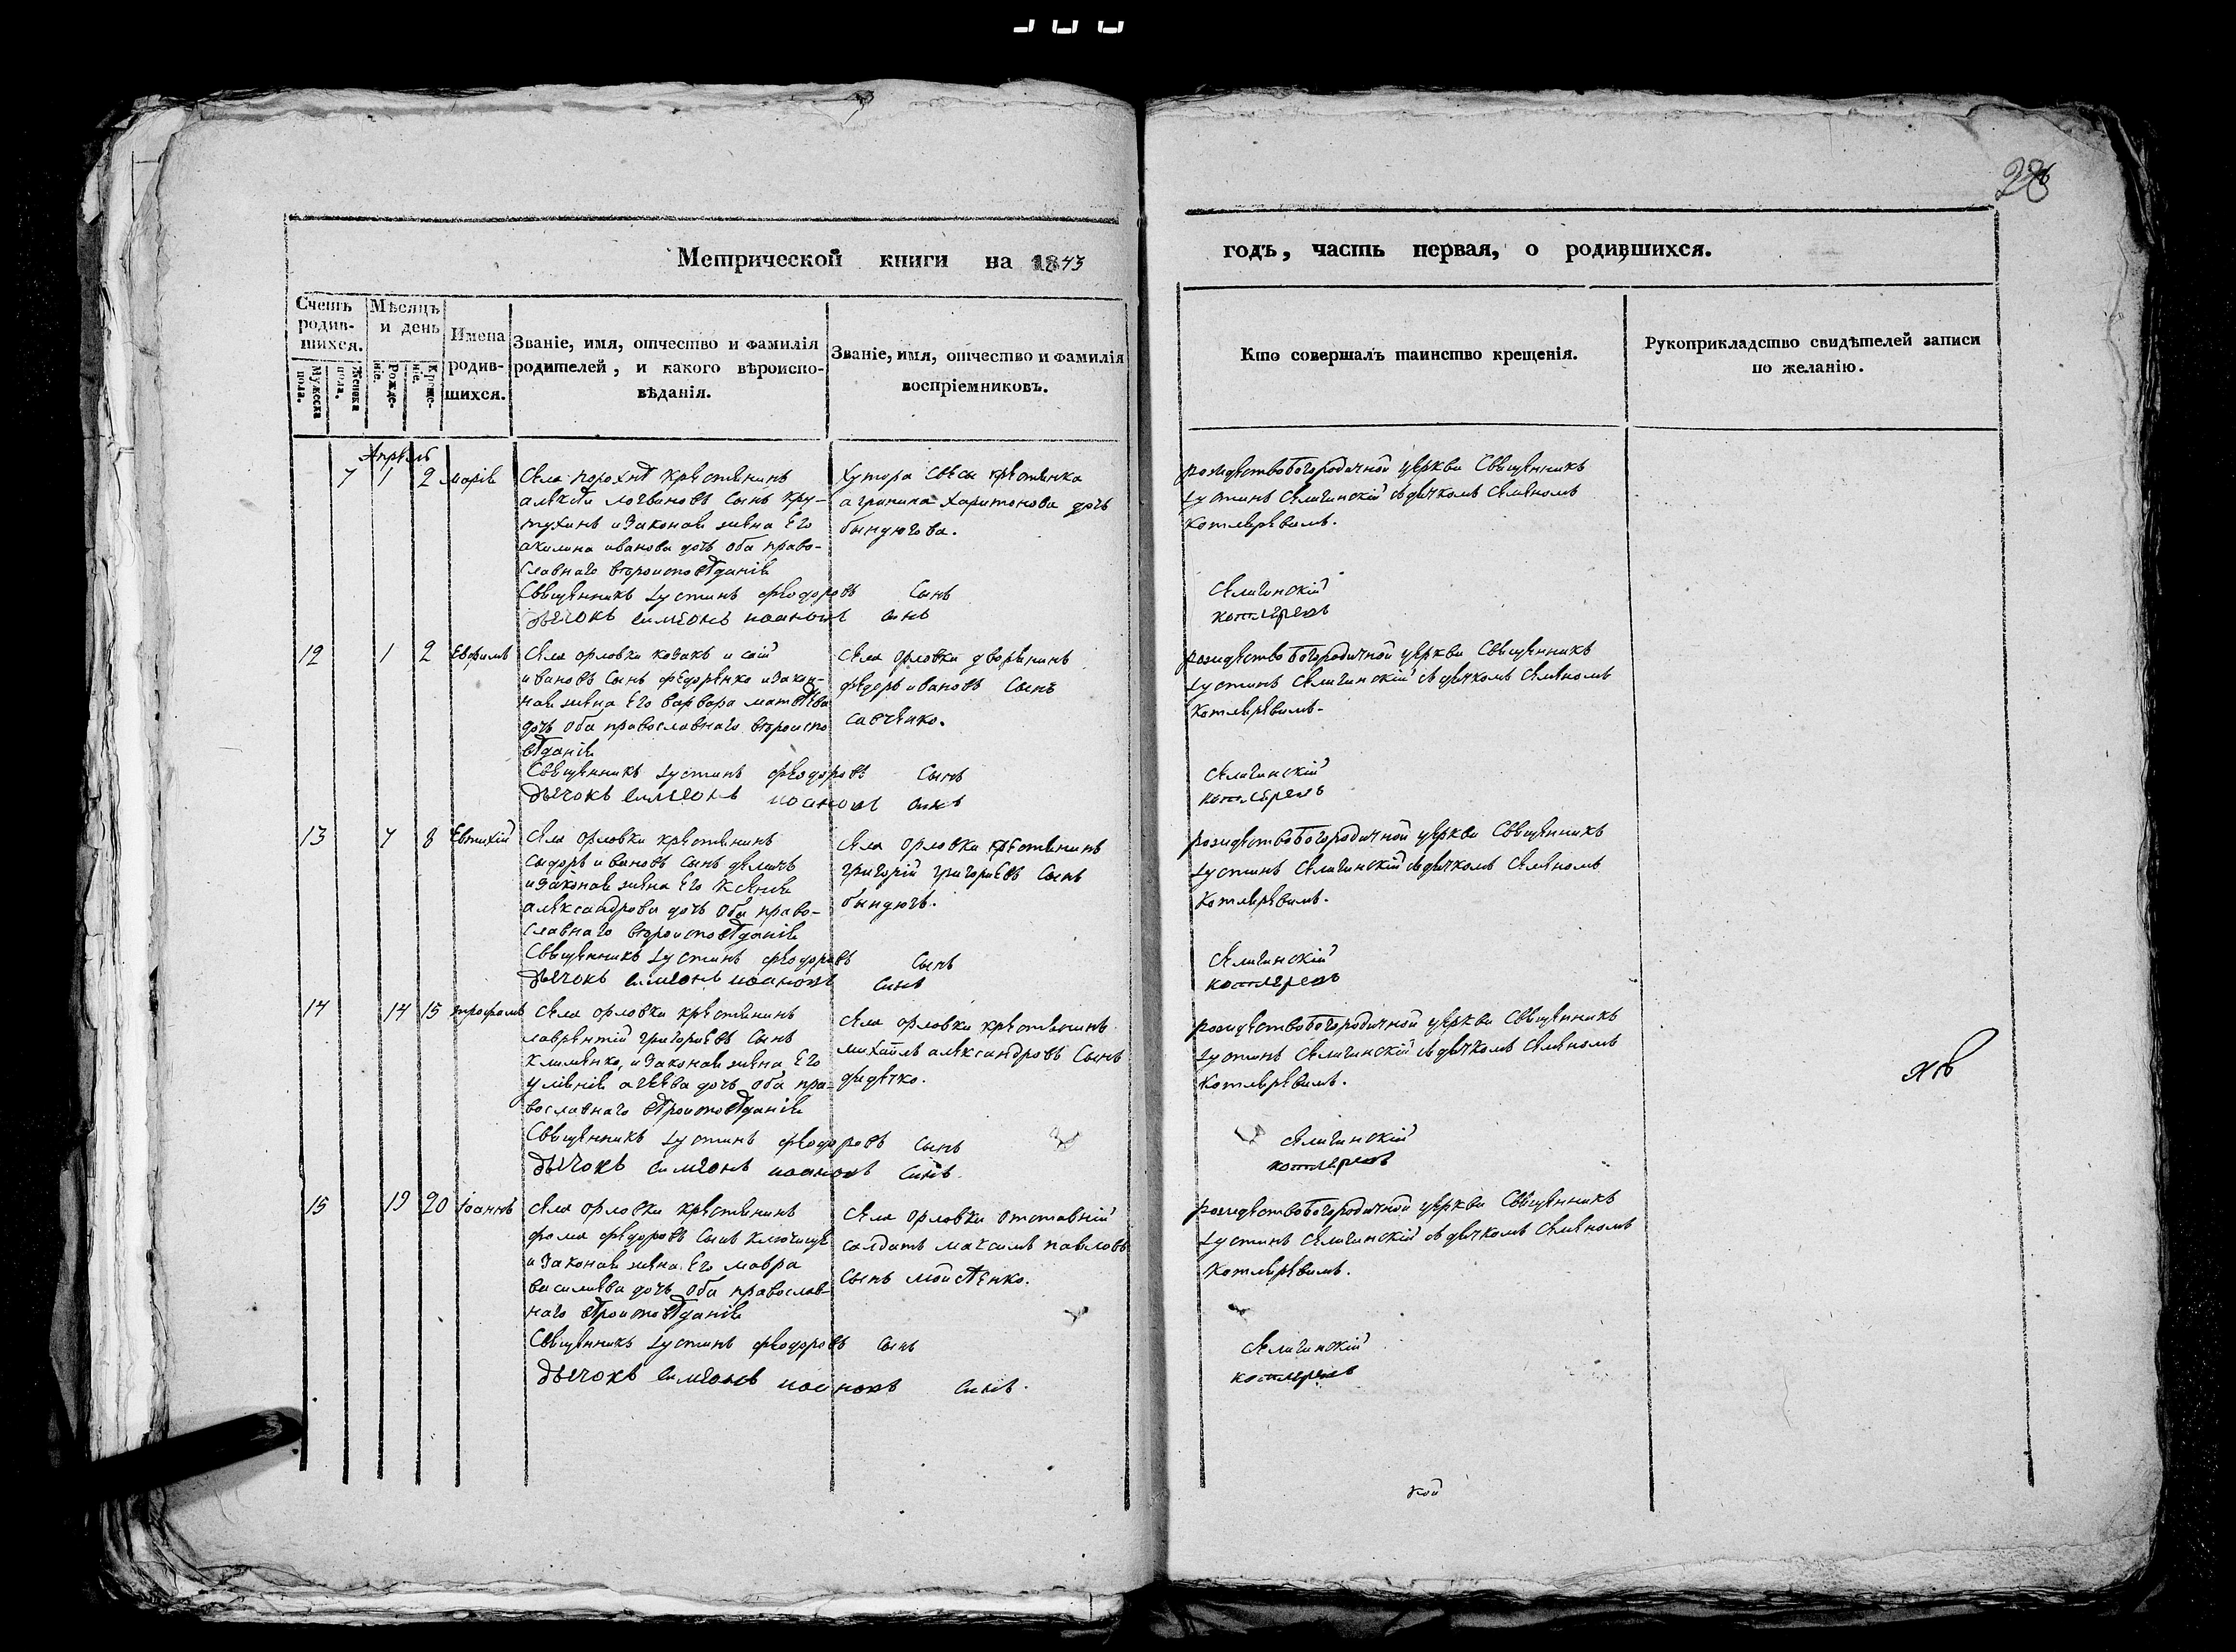 28
Метрической книги на 1843
годъ, часть первая, о родившихся.
Счетъ родив-шихся.
Мужеска пола.
Женска пола.
Мѣсяцъ и день
Рожде-ніе.
Креще-ніе.
Имена родив-шихся.
Званіе, имя, отчество и фамилія
родителей, и какого вѣроиспо-
вѣданія.
Званіе, имя, отчество и фамилія
воспріемниковъ.
Кто совершалъ таинство крещенія.
Рукоприкладство свидѣтелей записи
по желанію.
Апрель
7 1 2 марія
Села порохнѣ крестянинъ
алексѣй логвиновъ Сынъ кру-
тухинъ и законая жена Его
акилина иванова дочь оба право-
славнаго вѣроисповѣданія
Священникъ Іустинъ феодоровъ Сынъ
Дьячокъ симеонъ иоановъ синъ
Хутора крестянка
агрипина Харитонова дочь
бындюгова.
рождествобогородичной церкви Священникъ
Іустинъ Селигинскій съ дячкомъ Семеномъ
Котляревимъ.
Селигинскій
котлеревъ
12 1 2 Евфимъ
Села орловки козакъ исаій
ивановъ Сынъ федоренко и закон-
ная жена Его варвара матвѣева
дочь оба православнаго вѣроиспо
вѣданія
Священникъ Іустинъ феодоровъ Сынъ
Дьячокъ симеонъ иоановъ синъ
Села орловки дворянинъ
федоръ ивановъ Сынъ
савченко.
рождествобогородичной церкви Священникъ
Іустинъ Селигинскій съ дячкомъ Семеномъ
Котляревимъ.
Селигинскій
котлеревъ
13 7 8 Евтихій
Села орловки крестянинъ
сыдоръ ивановъ Сынъ
и законая жена Его Ксенія
александрова дочь оба право-
славнаго вѣроисповѣданія
Священникъ Іустинъ феодоровъ Сынъ
Дьячокъ симеонъ иоановъ синъ
Села орловки крестянинъ
григорій григориевъ Сынъ
бындюгъ.
рождествобогородичной церкви Священникъ
Іустинъ Селигинскій съ дячкомъ Семеномъ
Котляревимъ.
Селигинскій
котлеревъ
14 14 15 трофимъ
Села орловки крестянинъ
лаврентій григориевъ Сынъ
клименко, и законая жена Его
улянія агеева дочь оба пра-
вославнаго вѣроисповѣданія
Священникъ Іустинъ феодоровъ Сынъ
Дьячокъ симеонъ иоановъ синъ
Села орловки крестянинъ
михаилъ александровъ Сынъ
федечко.
рождествобогородичной церкви Священникъ
Іустинъ Селигинскій съ дячкомъ Семеномъ
Котляревимъ.
Селигинскій
котлеревъ
15 19 20 Іоаннъ
Села орловки крестянинъ
фома федоровъ Сынъ
и законая жена Его мавра
василиева дочь оба православ-
наго вѣроисповѣданія
Священникъ Іустинъ феодоровъ Сынъ
Дьячокъ симеонъ иоановъ синъ.
Села орловки отставній
салдатъ максимъ павловъ
Сынъ мойсѣенко.
рождествобогородичной церкви Священникъ
Іустинъ Селигинскій съ дячкомъ Семеномъ
Котляревимъ.
Селигинскій
котлеревъ
кой